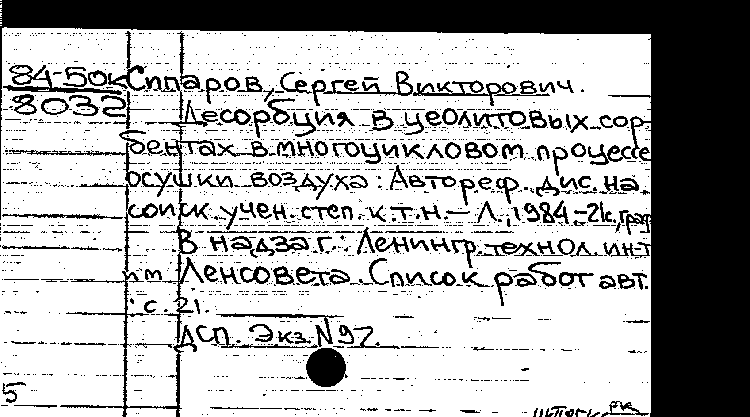 84-50к Сипаров, Сергей Викторович.
8032 Десорбция в цеолитовых сор-
бентах в многоцикловом процессе
осушки воздуха: Автореф. дис. на
соиск. учен. степ. к.т.н. – Л., 1984. – 21с., граф
В надзаг.: Ленингр. технол. ин-т
им. Ленсовета. Список работ авт.
: с. 21.
ДСП. Экз. N 97.
5